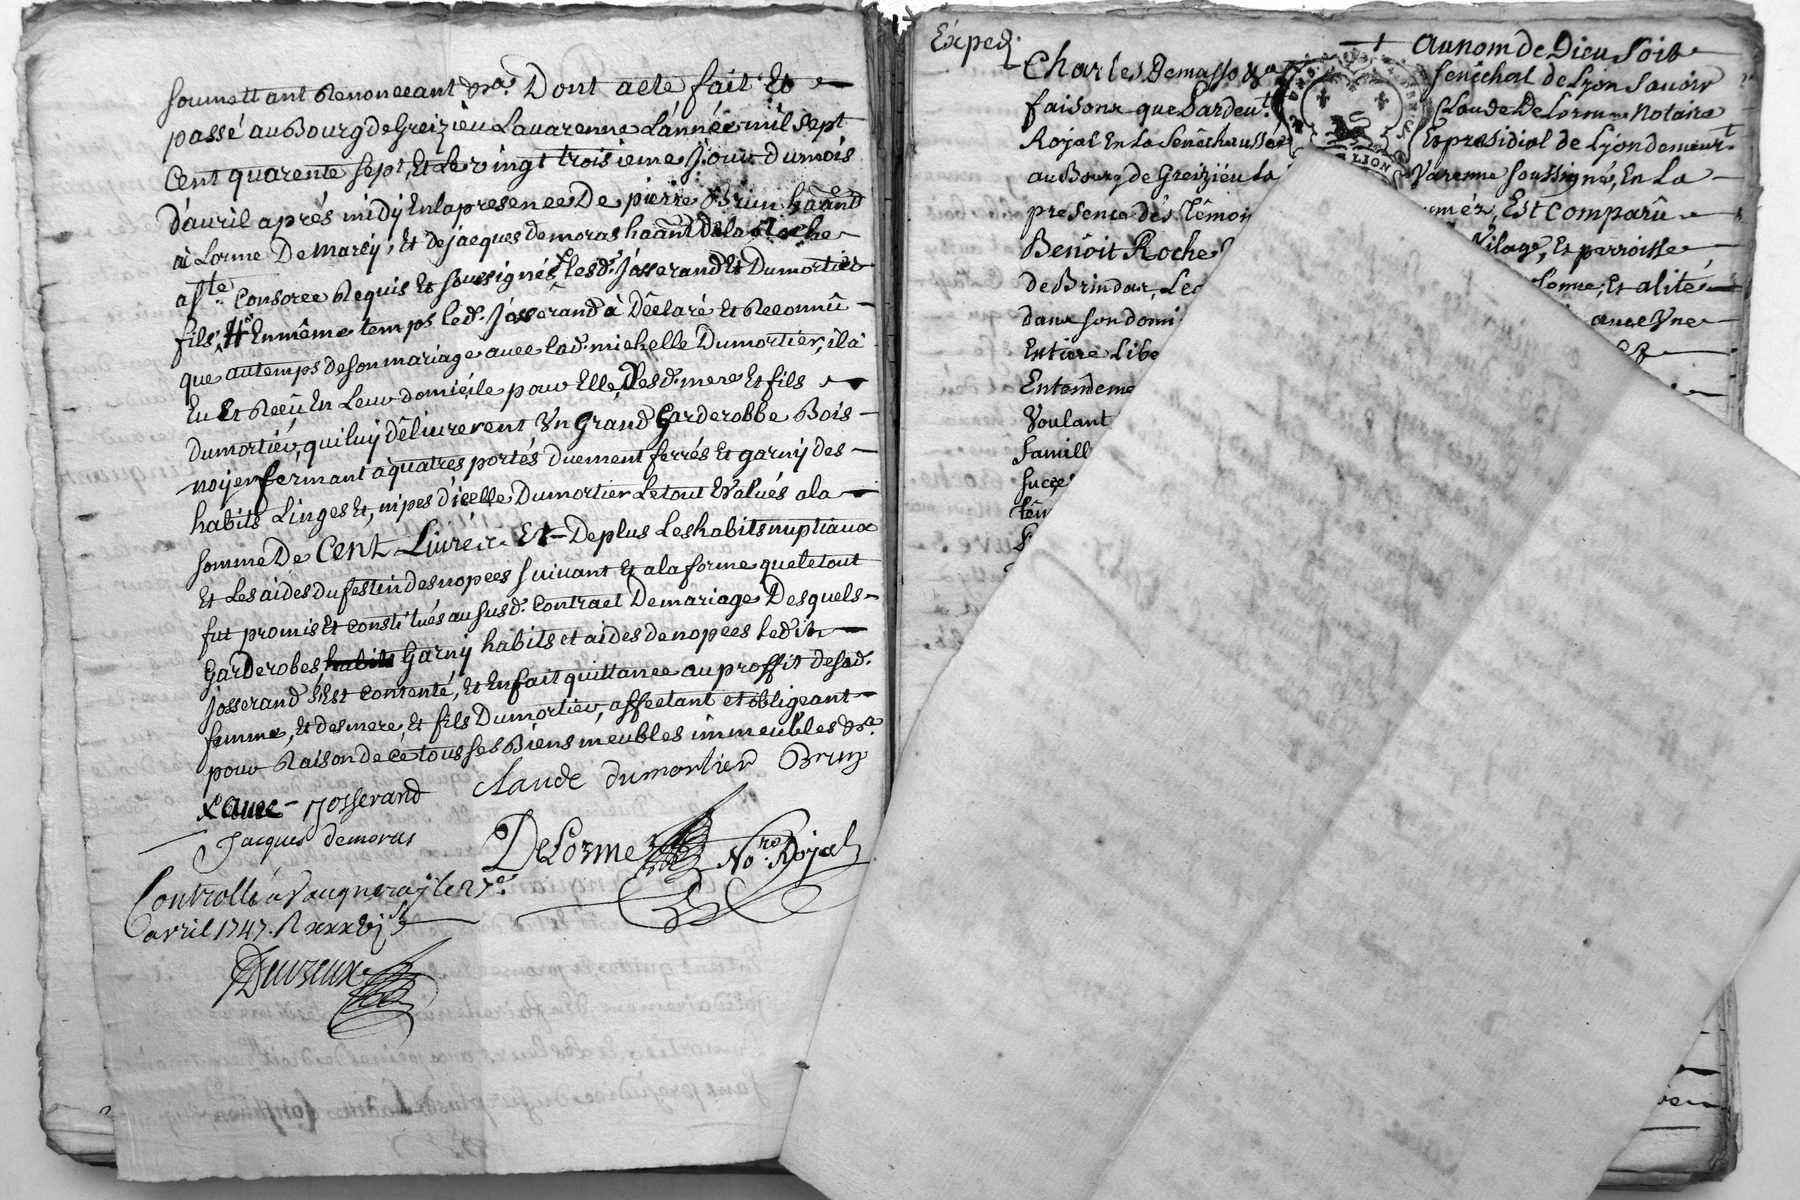 soumettant Renonceant &ra. Dont acte fait Et
passé au Bourg de Greizieu Lavarenne L'année mil sept
Cent quarente sept, Et Le vingt troisieme Jour du mois
d'auril aprés midy En la presence De pierre Brun haânt
à Lorme De Marcy, Et de jacques demoras haânt de la Roche
Consorce Requis Et soussignés lesd. Josserand Et Dumortier
fils, # En même temps led. Josserand à Déclaré Et Reconnû
que au temps de son mariage avec lad. michelle Dumortier, il a
Eu Et Reçû En Leur domicile pour Elle, Desd. mere Et fils
dumortier, qui luy délivrerent Un Grand Garderobbe Bois
noyer fermant a quatres portés duement ferrés Et garny des
habits Linges Et nipes d'icelle Dumortier Le tout Evalués a la
somme De Cent Livres Et De plus Les habits nuptiaux
Et Les aides du festin des nopces suivant Et a la forme que le tout
fut promis Et constitués au susd. Contract De mariage Desquels
Garderobes, habits Garny habits et aides de nopces ledit
josserand s'Est Contenté, Et En fait quittance au proffit de sad.
femme, Et des mere, Et fils Dumortier, affectant et obligeant
pour Raison de ce tous ses Biens meubles immeubles &ra.
x avec Josserand Claude dumortier Brun
Jacques demoras
DeLorme Nore. Royal
Controllé a Vaugneray le 27e.
avril 1747. R xxxvj s
Devzeux
Exped.
Au nom de Dieu Soit
Charles Demasso &a Senéchal de Lyon Savoir
faisons que Pardevt. Claude De Lorme Notaire
Royal En la Senéchaussée Et presidial de Lyon demeurt.
au Bourg de Greizieu La Varenne soussigné, En La
presence dés Témoi més, Est Comparû
Benoit Roche Vilage, Et parroisse
de Brindas, Les lome, Et alité
dans son domi avec Une
Entiere Libe
Entendeme
Voulant
famill
succe
tem